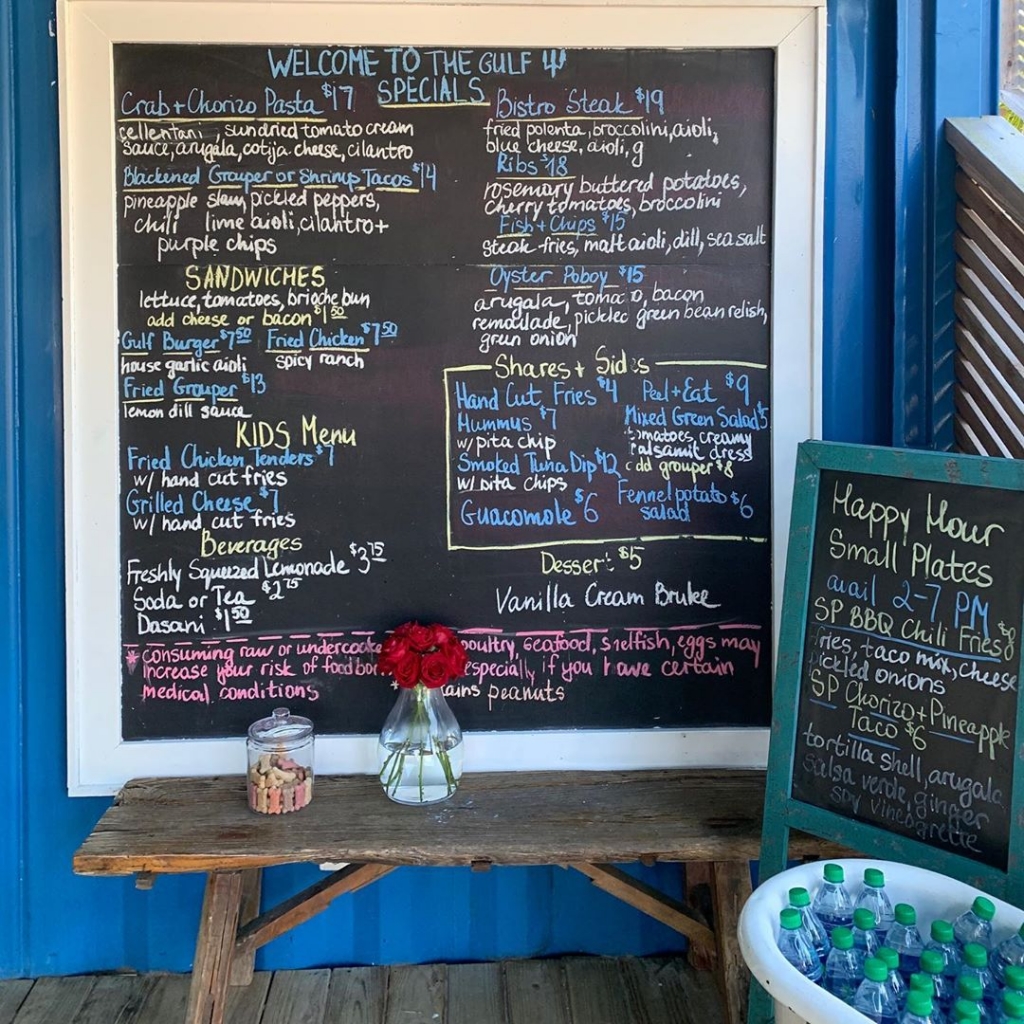 WELCOME TO THE GULF
SPECIALS
Crab + Chorizo Pasta $17
cellentani, sundried tomato cream
sauce, arugala, cotija cheese, cilantro
Blackened Grouper or Shrimp Tacos $14
pineapple slaw, pickled peppers,
chili lime aioli, cilantro +
purple chips
Bistro Steak $19
fried polenta, broccolini, aioli,
blue cheese, aioli, g
Ribs $18
rosemary buttered potatoes,
cherry tomatoes, broccolini
Fish + Chips $15
steak fries, malt aioli, dill, sea salt
Oyster Poboy $15
arugala, toma o, bacon
remoulade, pickled green bean relish,
green onion
SANDWICHES
lettuce, tomatoes, brioche bun
add cheese or bacon $1.50
Gulf Burger $7.50 Fried Chicken $7.50
house garlic aioli spicy ranch
Fried Grouper $13
lemon dill sauce
KIDS Menu
Fried Chicken Tenders $7
w/ hand cut fries
Grilled Cheese $7
w/ hand cut fries
Beverages
Freshly Squeezed Lemonade $3.75
Soda or Tea $2.75
Dasani $1.50
Shares + Sides
Hand Cut Fries $4
Hummus $7
w/ pita chip
Smoked Tuna Dip $12
w/ pita chips
Guacomole $6
Peel + Eat $9
Mixed Green Salad $5
tomatoes, creamy
balsamic dress
add grouper $8
Fennel potato $6
salad
Dessert $5
Vanilla Cream Brulee
* consuming raw or undercooke poultry, seafood, shelfish, eggs may
increase your risk of food bor especially if you have certain
medical conditions ains peanuts
Happy Hour
Small Plates
avail 2-7 PM
SP BBQ Chili Fries $8
fries, taco mix, cheese
pickled onions
SP Chorizo + Pineapple
Taco $6
tortilla shell, arugala
salsa verde, ginger
soy vineagrette